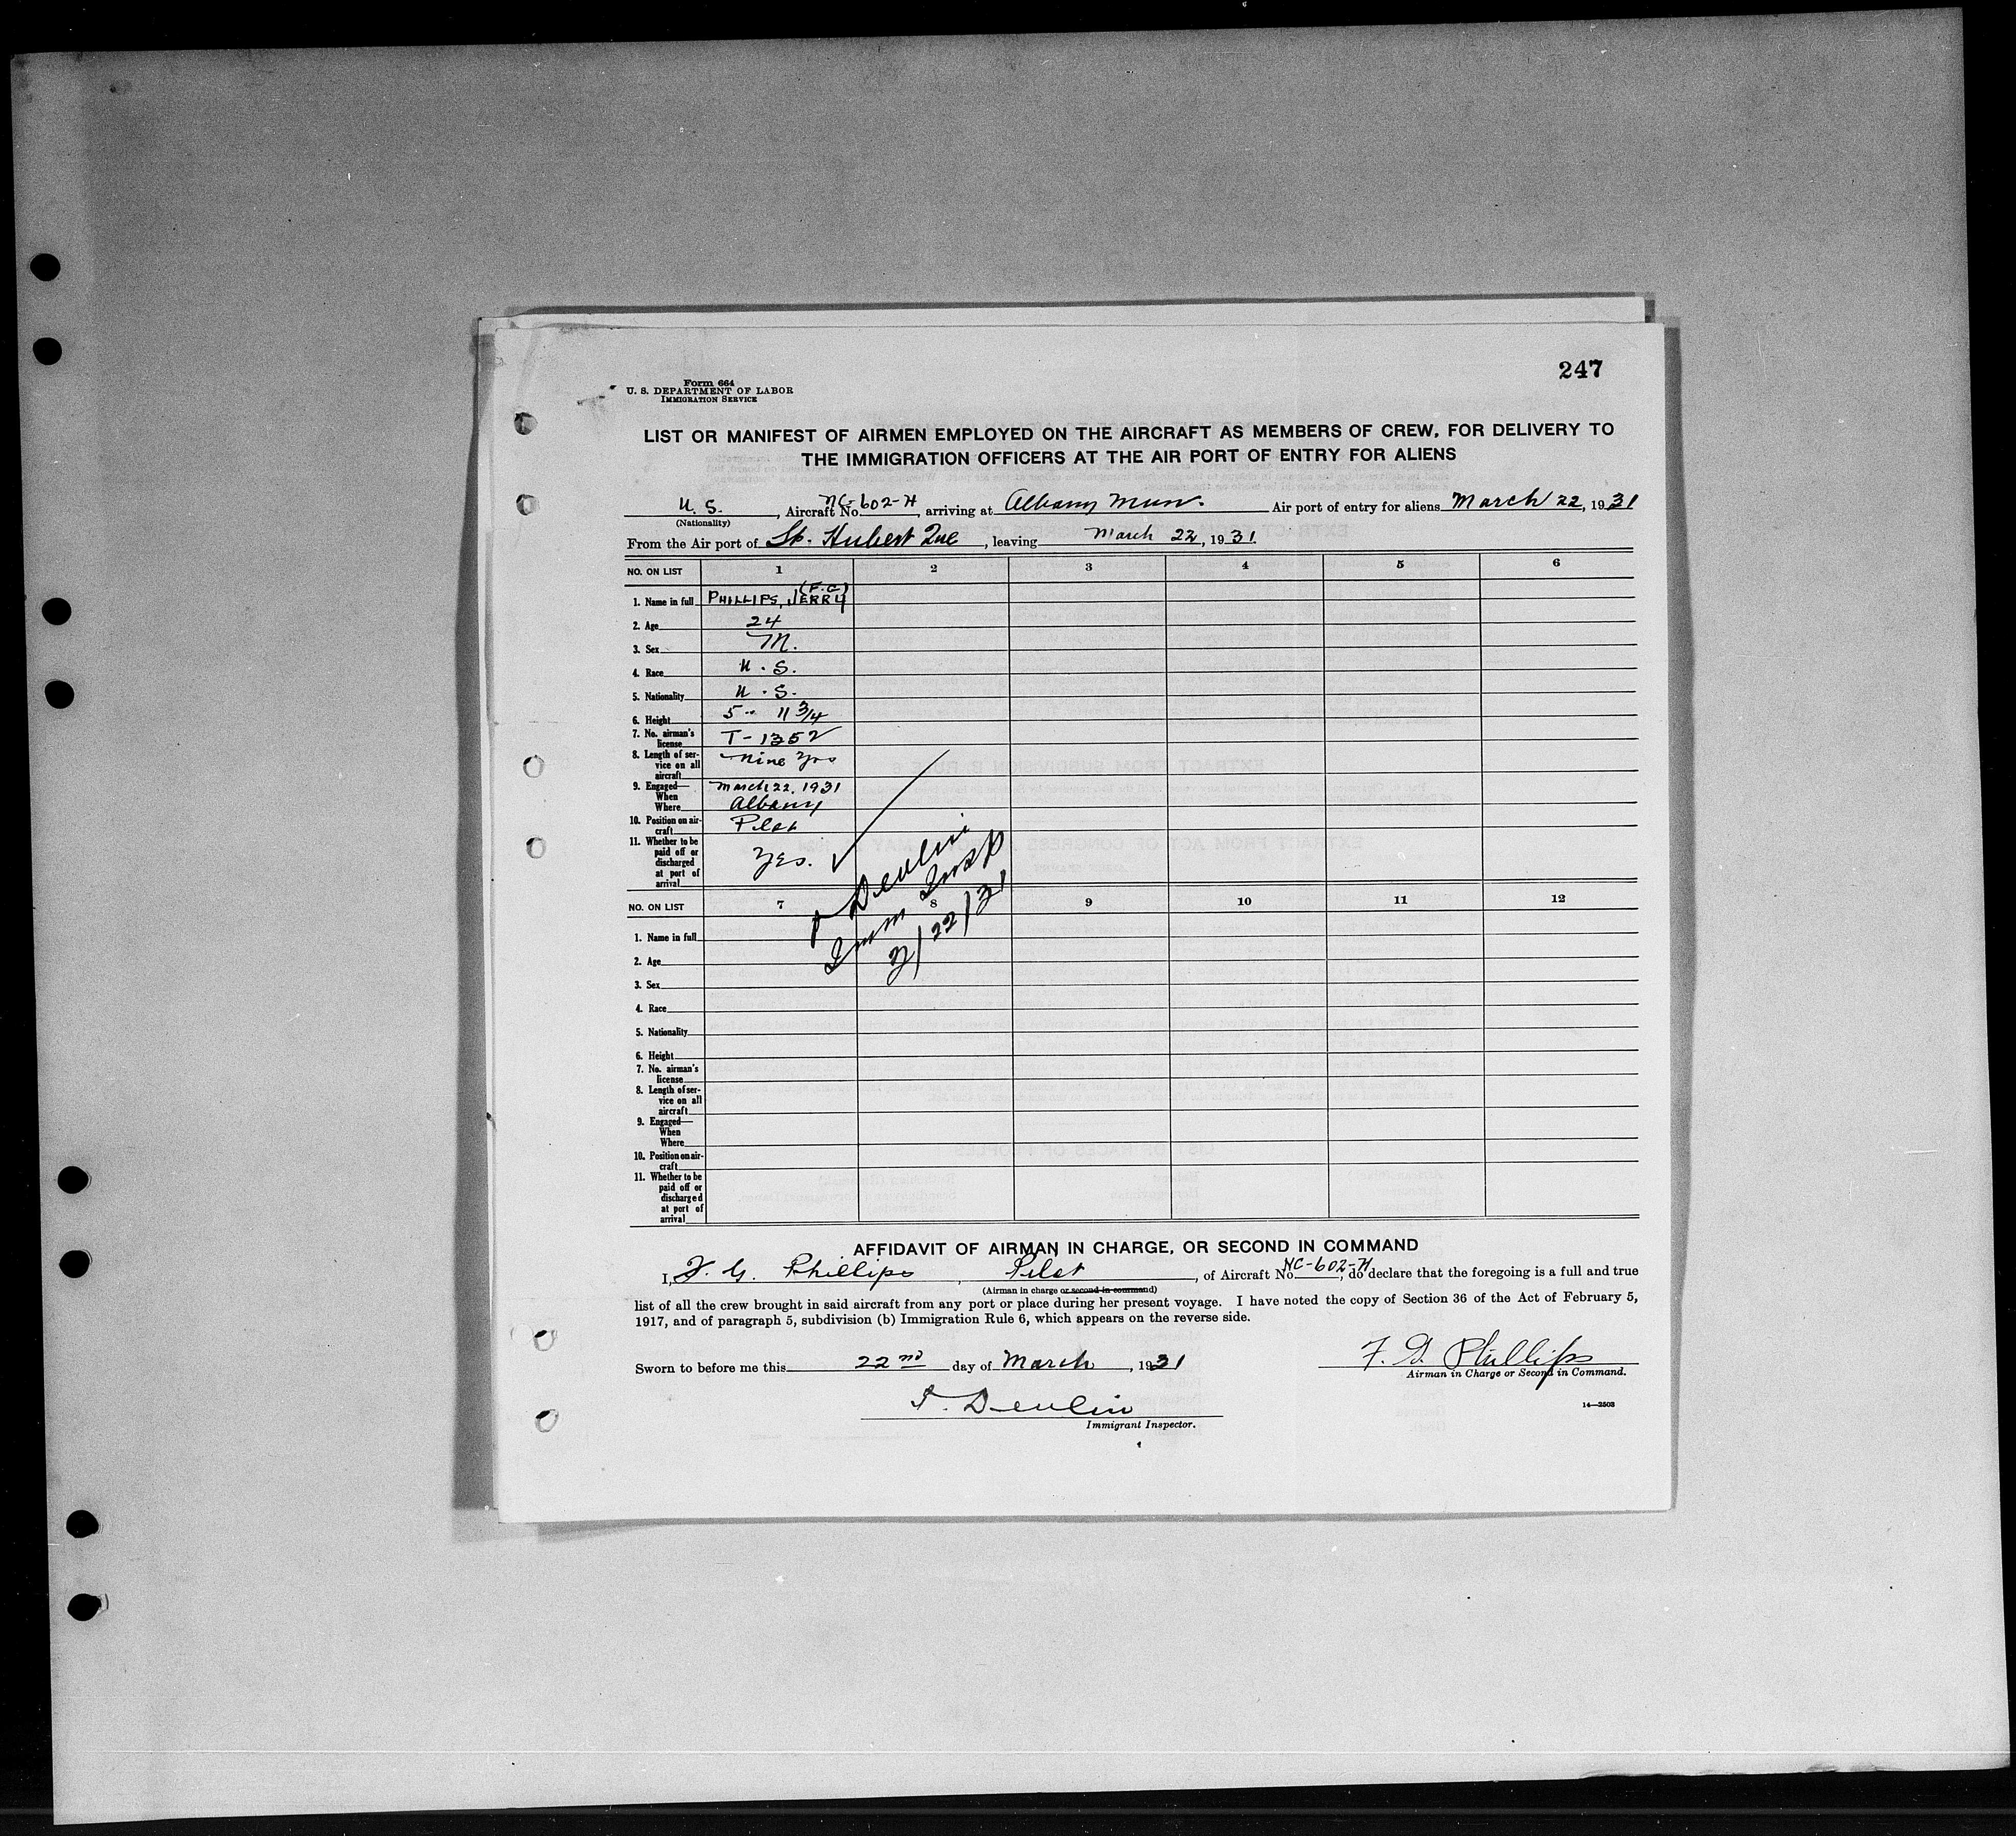 247
Form 664
U. S. DEPARTMENT OF LABOR
IMMIGRATION SERVICE
LIST OR MANIFEST OF AIRMEN EMPLOYED ON THE AIRCRAFT AS MEMBERS OF CREW, FOR DELIVERY TO
THE IMMIGRATION OFFICERS AT THE AIR PORT OF ENTRY FOR ALIENS
U. S., Aircraft No. NC-602-H, arriving at Albany Mun. Air port of entry for aliens March 22, 1931
(Nationality)
From the Air port of St. Hubert Que, leaving March 22, 1931.
NO. ON LIST 1 2 3 4 5 6
1. Name in full PHILLIPS, JERRY (F.G)
2. Age 24
3. Sex M.
4. Race U. S.
5. Nationality U. S.
6. Height 5- 11 3/4
7. No. airman's license T-1352
8. Length of service on all aircraft Nine Yrs
9. Engaged— When March 22, 1931
Where Albany
10. Position on aircraft Pilot
11. Whether to be paid off or discharged at port of arrival Yes.
Devlin
Imm Insp
3/22/31
NO. ON LIST 7 8 9 10 11 12
1. Name in full
2. Age
3. Sex
4. Race
5. Nationality
6. Height
7. No. airman's license
8. Length of service on all aircraft
9. Engaged— When
Where
10. Position on aircraft
11. Whether to be paid off or discharged at port of arrival
AFFIDAVIT OF AIRMAN IN CHARGE, OR SECOND IN COMMAND
I, F. G. Phillips, Pilot, of Aircraft No. NC-602-H, do declare that the foregoing is a full and true
(Airman in charge or second in command)
list of all the crew brought in said aircraft from any port or place during her present voyage. I have noted the copy of Section 36 of the Act of February 5,
1917, and of paragraph 5, subdivision (b) Immigration Rule 6, which appears on the reverse side.
Sworn to before me this 22nd day of March, 1931
F. G. Phillips
Airman in Charge or Second in Command.
Devlin
Immigrant Inspector.
14—2503